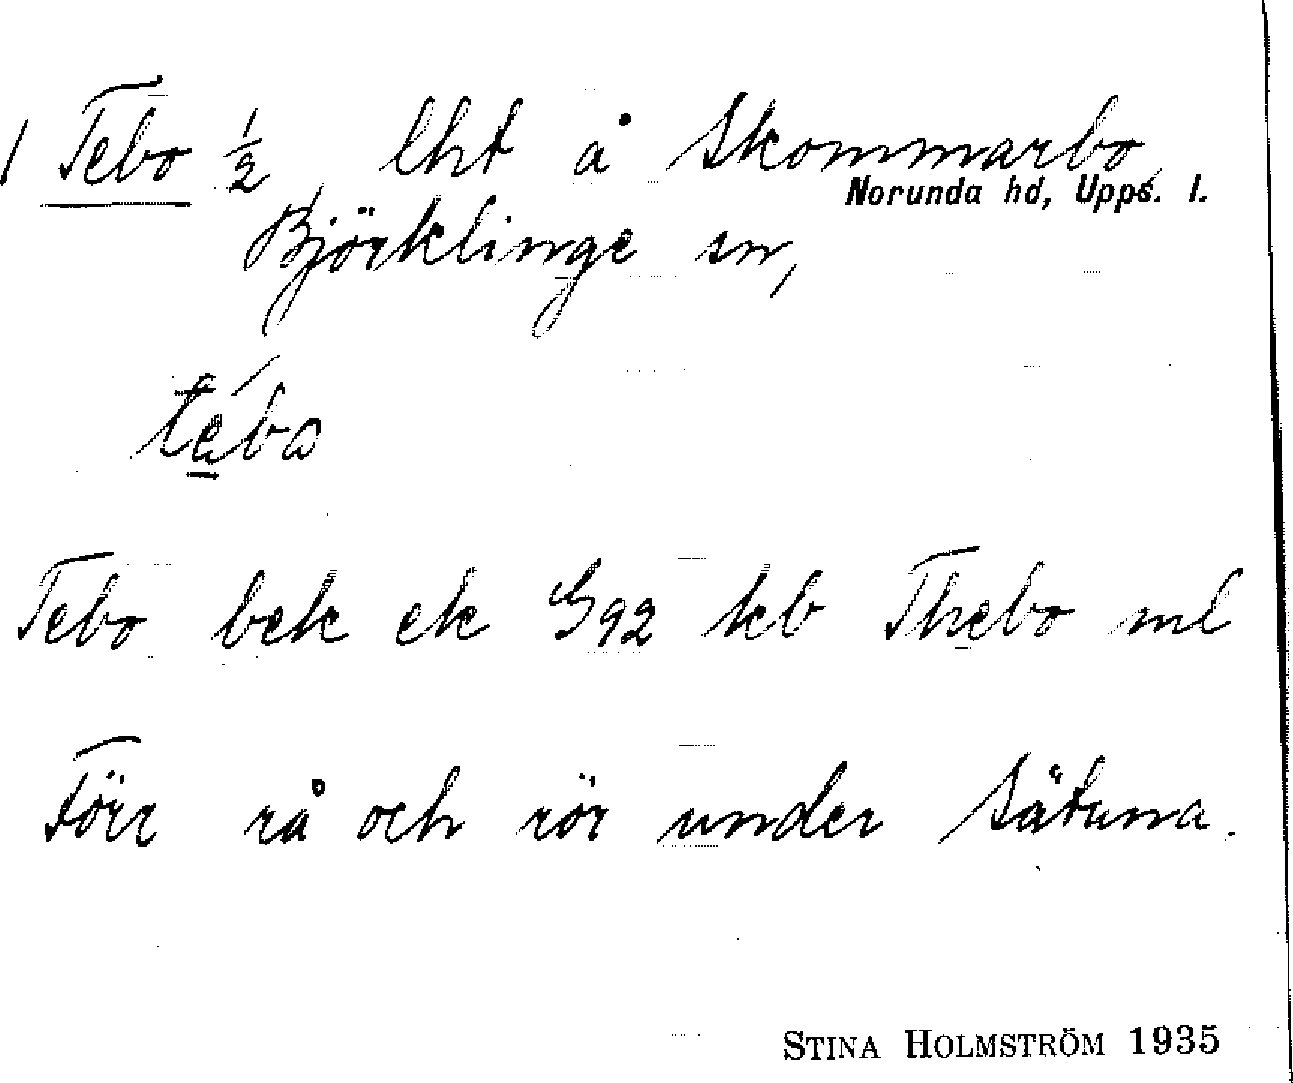 1 Tebo ½, lht å Skommarbo,
Norunda hd, Upps. l.
Björklinge sn,
te̲´bo
Tebo bek ek G92 kb Thebo ml
Förr rå och rör under Sätuna.
STINA HOLMSTRÖM 1935